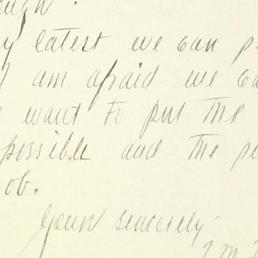 latest we can p
am afraid we ca
want to put the
possible and the pe
ob.
Yours sincerely